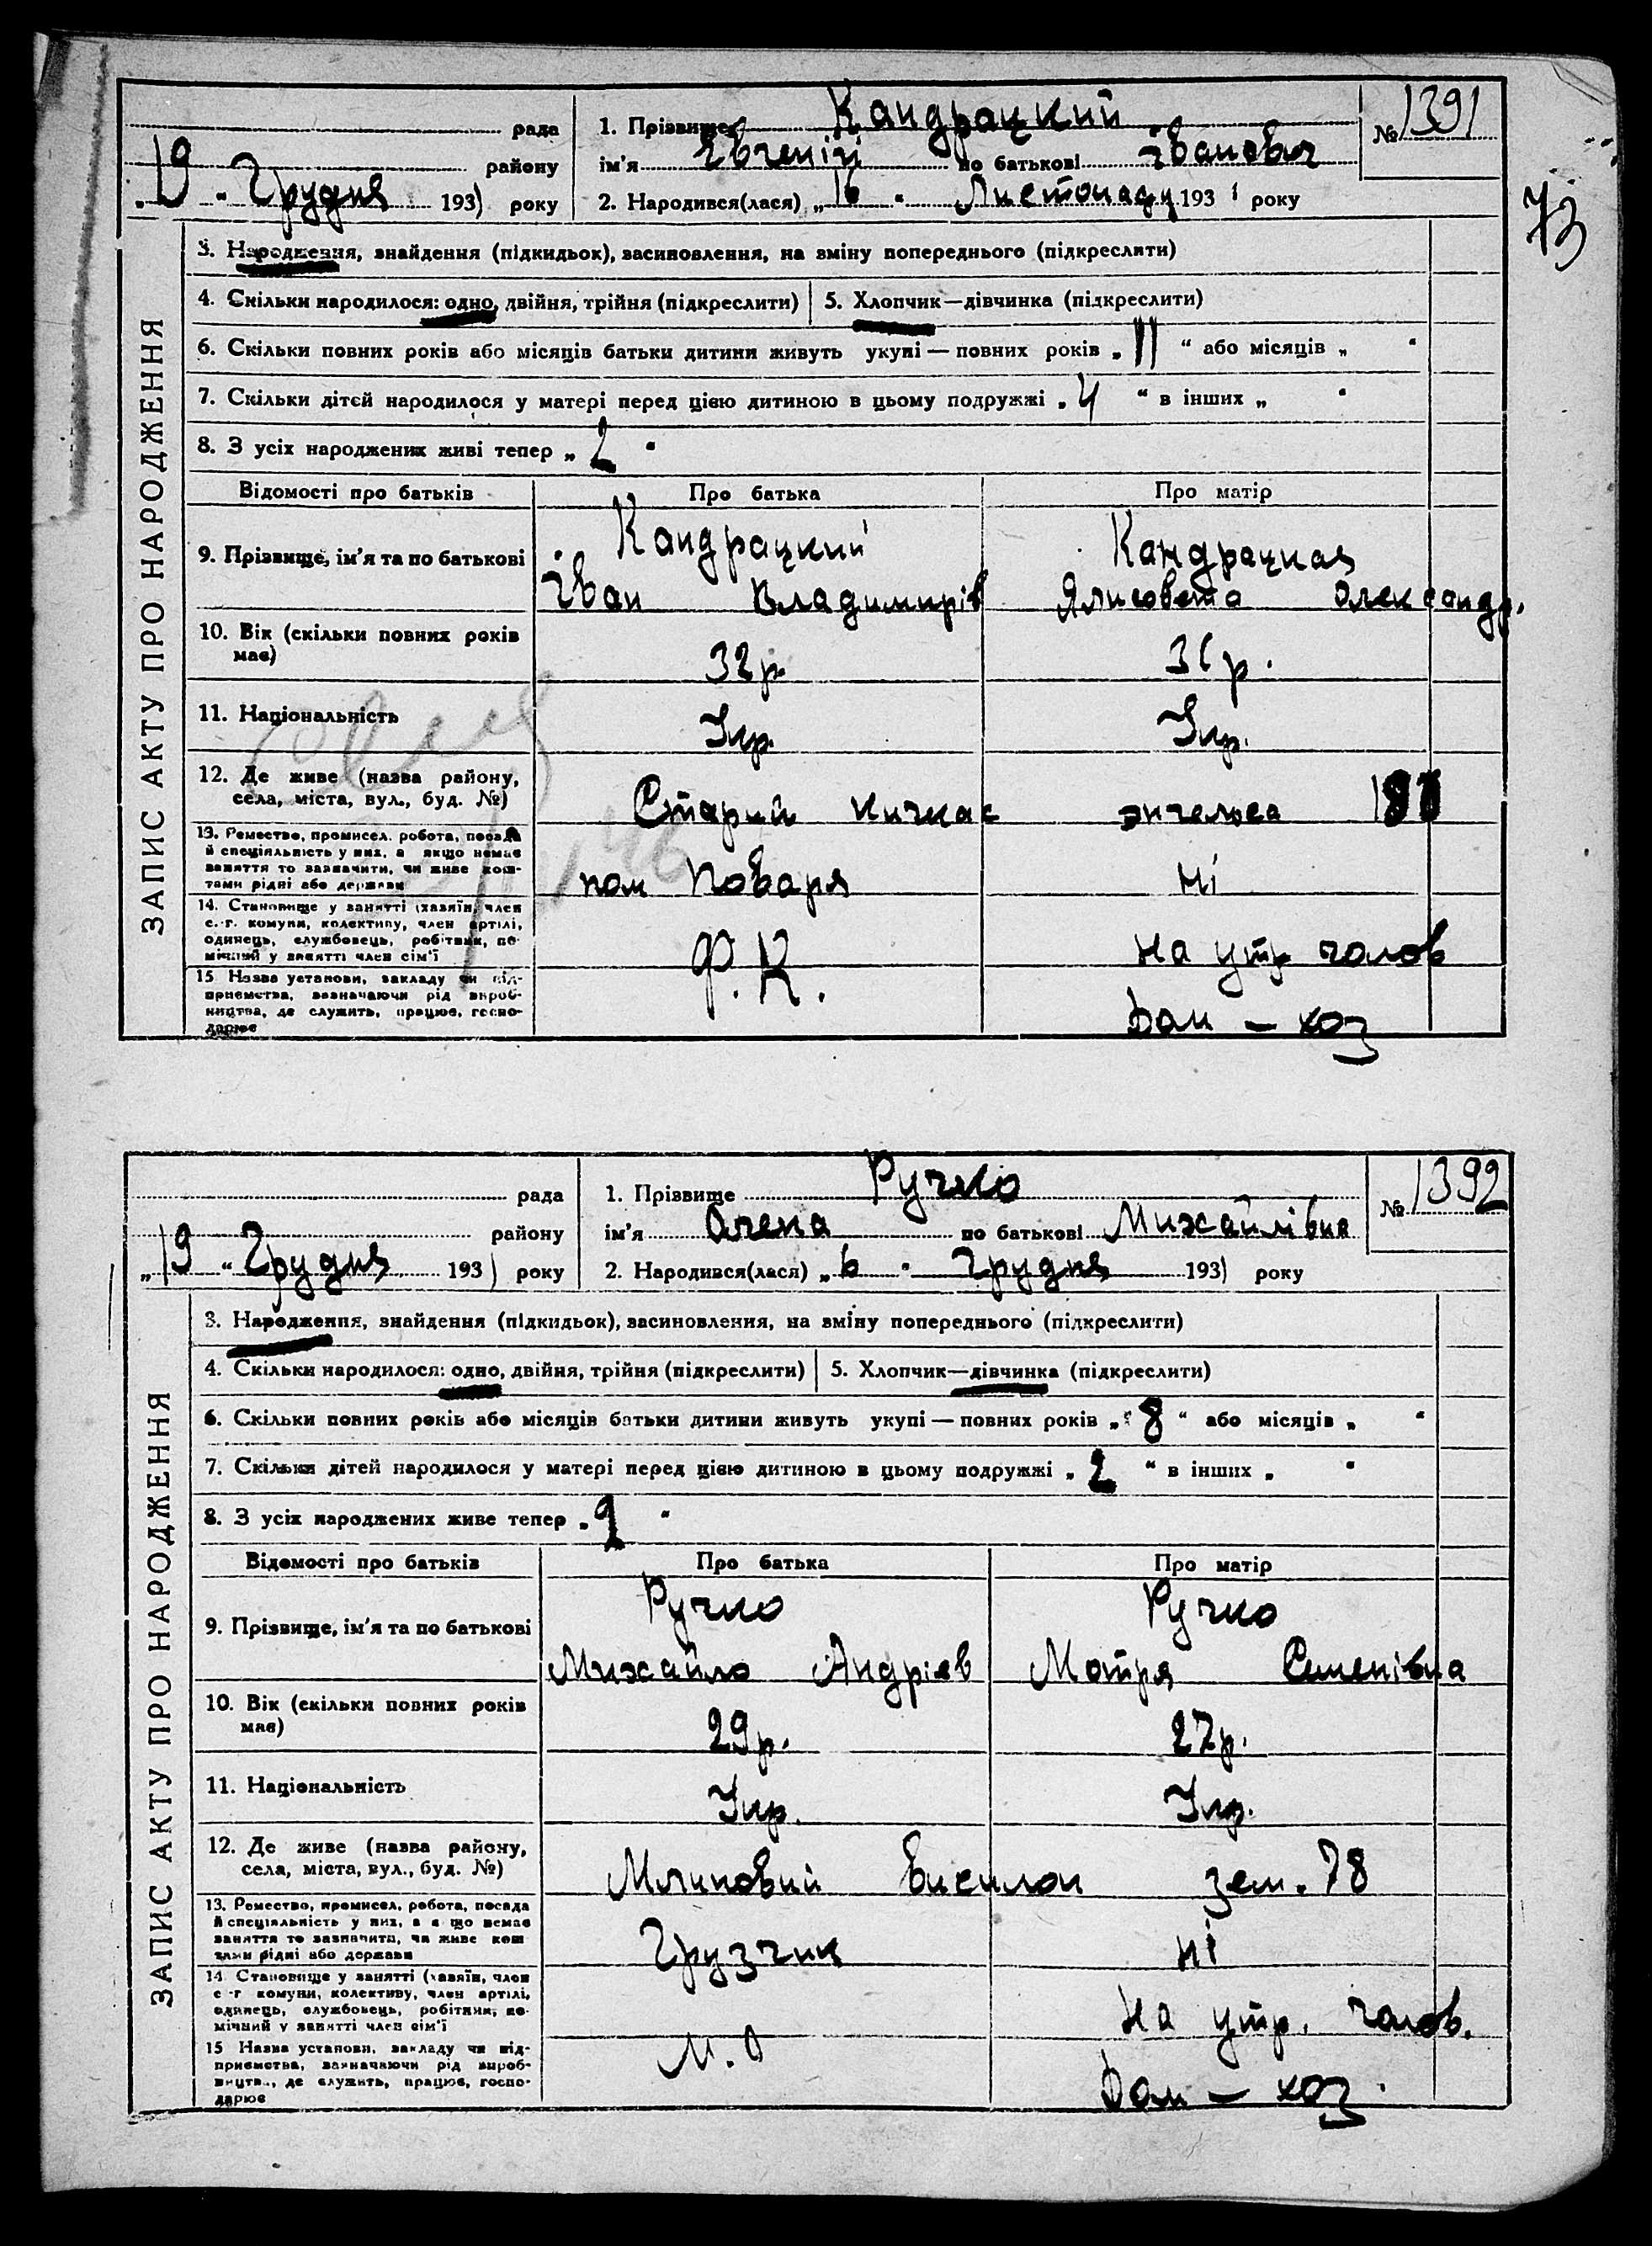 Кандрацкий
№ 1391
рада
1. Прізвище
району
ім'я Євгеній по батькові Іванович
„19" Грудня 1931 року
2. Народився(лася) „16" Листопаду 1931 року
73
ЗАПИС АКТУ ПРО НАРОДЖЕННЯ
3. Народження, знайдення (підкидьок), засиновлення, на зміну попереднього (підкреслити)
4. Скільки народилося: одно, двійня, трійня (підкреслити)
5. Хлопчик—дівчинка (підкреслити)
6. Скільки повних років або місяців батьки дитини живуть укупі — повних років „11" або місяців „ "
7. Скільки дітей народилося у матері перед цією дитиною в цьому подружжі „4" в інших „ "
8. З усіх народжених живі тепер „2"
Відомості про батьків
Про батька
Про матір
9. Прізвище, ім'я та по батькові
Кандрацкий
Іван Владимирів
Кандрацкая
Ялисовета Олександр.
10. Вік (скільки повних років
має)
32р.
31р.
11. Національність
Укр.
Укр.
12. Де живе (назва району,
села, міста, вул., буд. №)
Старий Кичкас энгельса
13. Ремество, промисел, робота, посада
й спеціяльність у них, а якщо немає
заняття то зазначити, чи живе кош-
тами рідні або держави
пом Поваря
Ні
14. Становище у занятті (хазяїн, член
с.-г. комуни, колективу, член артілі,
одинець, службовець, робітник, по-
мічний у занятті член сім'ї
На утр чолов
15. Назва установи, закладу чи під-
приємства, зазначаючи рід вироб-
ництва, де служить, працює, госпо-
дарює
Ф.К.
Дом — хоз
Ручко
№ 1392
рада
1. Прізвище
району
ім'я Олена по батькові Михайлівна
„19" Грудня 1931 року
2. Народився(лася) „6" Грудня 1931 року
ЗАПИС АКТУ ПРО НАРОДЖЕННЯ
3. Народження, знайдення (підкидьок), засиновлення, на зміну попереднього (підкреслити)
4. Скільки народилося: одно, двійня, трійня (підкреслити)
5. Хлопчик—дівчинка (підкреслити)
6. Скільки повних років або місяців батьки дитини живуть укупі — повних років „8" або місяців „ "
7. Скільки дітей народилося у матері перед цією дитиною в цьому подружжі „2" в інших „ "
8. З усіх народжених живе тепер „2"
Відомості про батьків
Про батька
Про матір
9. Прізвище, ім'я та по батькові
Ручко
Михайло Андріев
Ручко
Мотря Семенівна
10. Вік (скільки повних років
має)
29р.
27р.
11. Національність
Укр.
Укр.
12. Де живе (назва району,
села, міста, вул., буд. №)
Млиновий Висилок зем. 78
13. Ремество, промисел, робота, посада
й спеціяльність у них, а якщо немає
заняття то зазначити, чи живе кош-
тами рідні або держави
Грузчик
Ні
14. Становище у занятті (хазяїн, член
с.-г. комуни, колективу, член артілі,
одинець, службовець, робітник, по-
мічний у занятті член сім'ї
На утр. чолов.
15. Назва установи, закладу чи під-
приємства, зазначаючи рід вироб-
ництва, де служить, працює, госпо-
дарює
Дом — хоз.